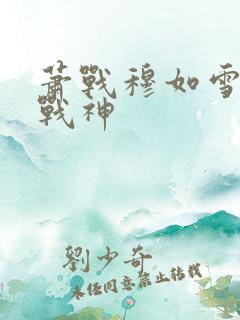 蕭戰穆如雪
戰神
劉少奇
未经同意禁止转载